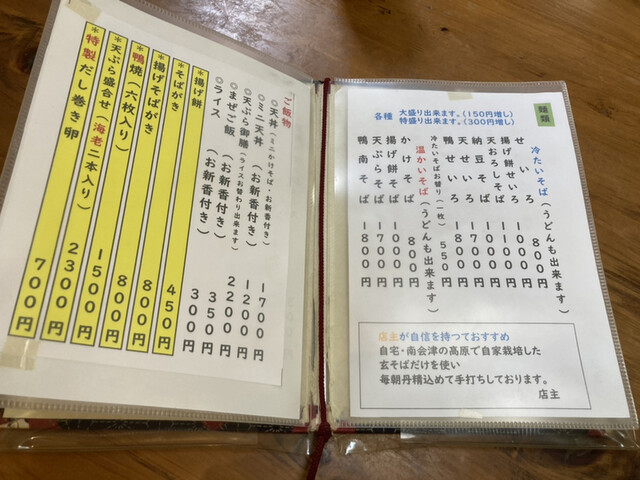 麺類
各種 大盛り出来ます。(150円増し)
特盛り出来ます。(300円増し)
冷たいそば(うどんも出来ます)
せいろ 800円
揚げ餅せいろ 1000円
天おろしそば 1100円
納豆そば 1000円
天せいろ 1700円
鴨せいろ 1800円
冷たいそばお替り(一枚) 550円
温かいそば(うどんも出来ます)
かけそば 800円
揚げ餅そば 1000円
天ぷらそば 1700円
鴨南そば 1800円
店主が自信を持つておすすめ
自宅・南会津の高原で自家栽培した
玄そばだけを使い
毎朝丹精込めて手打ちしております。
店主
ご飯物
○天丼(ミニかけそば・お新香付き) 1700円
○ミニ天丼(お新香付き) 1200円
○天ぷら御膳(ライスお替わり出来ます) 2200円
○まぜご飯(お新香付き) 350円
○ライス(お新香付き) 300円
*揚げ餅 450円
*そばがき 800円
*揚げそばがき 800円
*鴨焼(六枚入り) 1500円
*天ぷら盛合せ(海老二本入り) 2300円
*特製だし巻き卵 700円